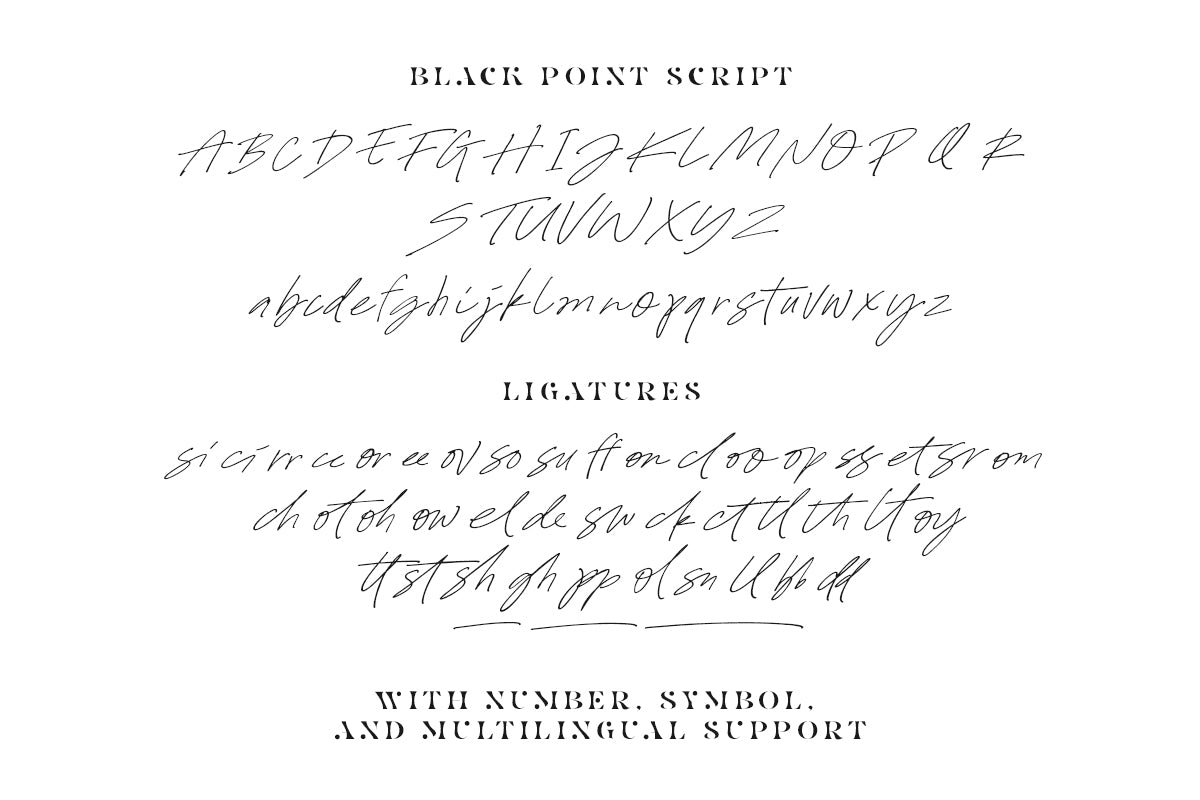 BLACK POINT SCRIPT
A B C D E F G H I J K L M N O P Q R
S T U V W X Y Z
a b c d e f g h i j k l m n o p q r s t u v w x y z
LIGATURES
si ci rr cc or ee ov so su ff on cl oo op ss et sr om
ch ot oh ow el de sw ck ct tl th lt oy
tt st sh gh pp ol sn ll bb dd
WITH NUMBER, SYMBOL,
AND MULTILINGUAL SUPPORT